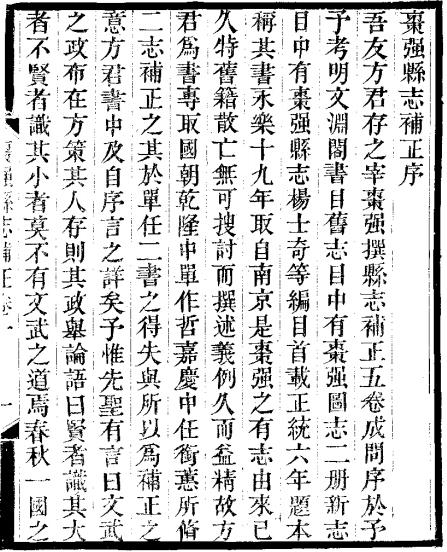 棗强縣志補正序
吾友方君存之宰棗强撰縣志補正五卷成問序於予
予考明文淵閣書目舊志目中有棗强圖志二册新志
目中有棗强縣志楊士奇等編目首載正統六年題本
稱其書永樂十九年取自南京是棗强之有志由來已
久特舊籍散亡無可搜討而撰述義例久而益精故方
君爲書專取國朝乾隆中單作哲嘉慶中任銜蕙所脩
二志補正之其於單任二書之得失與所以爲補正之
意方君書中及自序言之詳矣予惟先聖有言曰文武
之政布在方策其人存則其政舉論語曰賢者識其大
者不賢者識其小者莫不有文武之道焉春秋一國之
棗强縣志補正 一